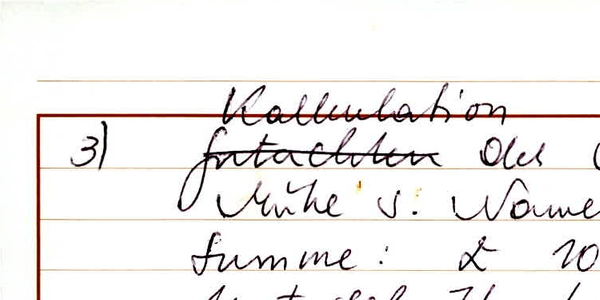 Kalkulation
3) Gutachten des
Mühe v. Name
Summe: £ 10